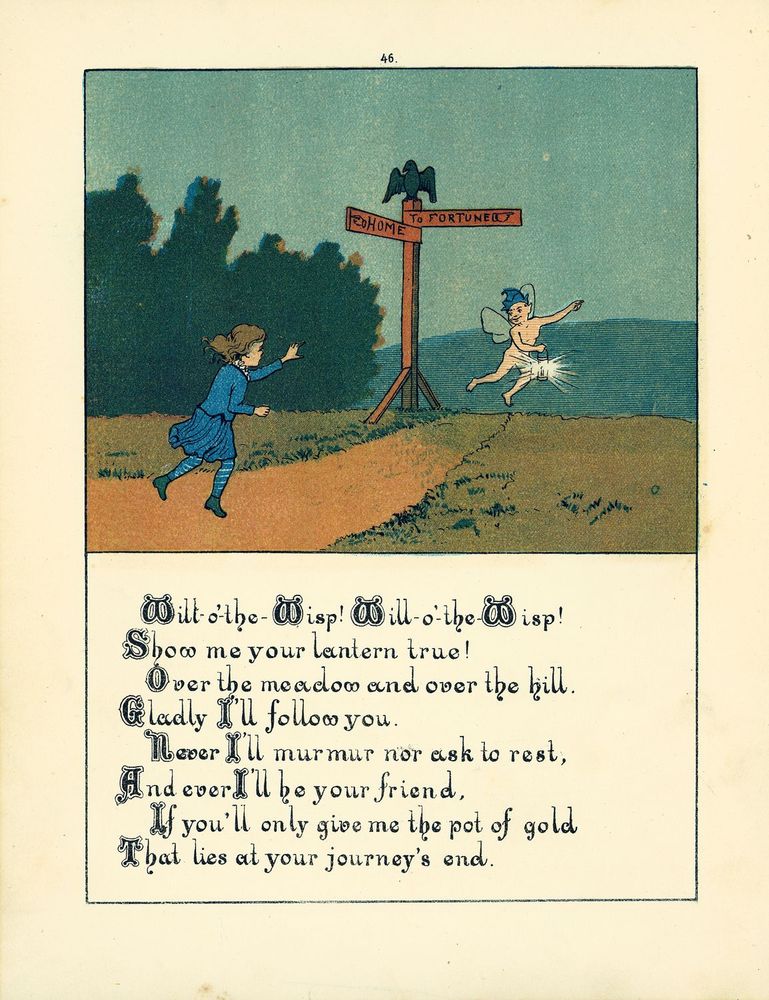 46.
TO HOME
To FORTUNE
Will-o'-the-Wisp! Will-o'-the-Wisp!
Show me your lantern true!
Over the meadow and over the hill.
Gladly I'll follow you.
Never I'll murmur nor ask to rest,
And ever I'll be your friend,
If you'll only give me the pot of gold
That lies at your journey's end.